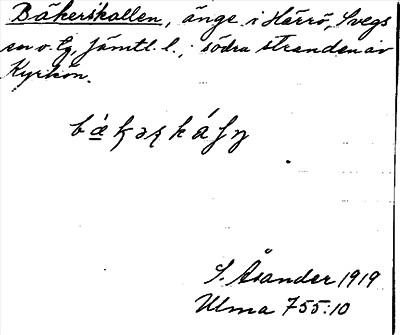 Bäkerskallen, änge i Härrö, Svegs
sn o. tg, Jämtl. l.; södra stranden av
Kyrkön.
S. Åsander 1919
Ulma 755:10